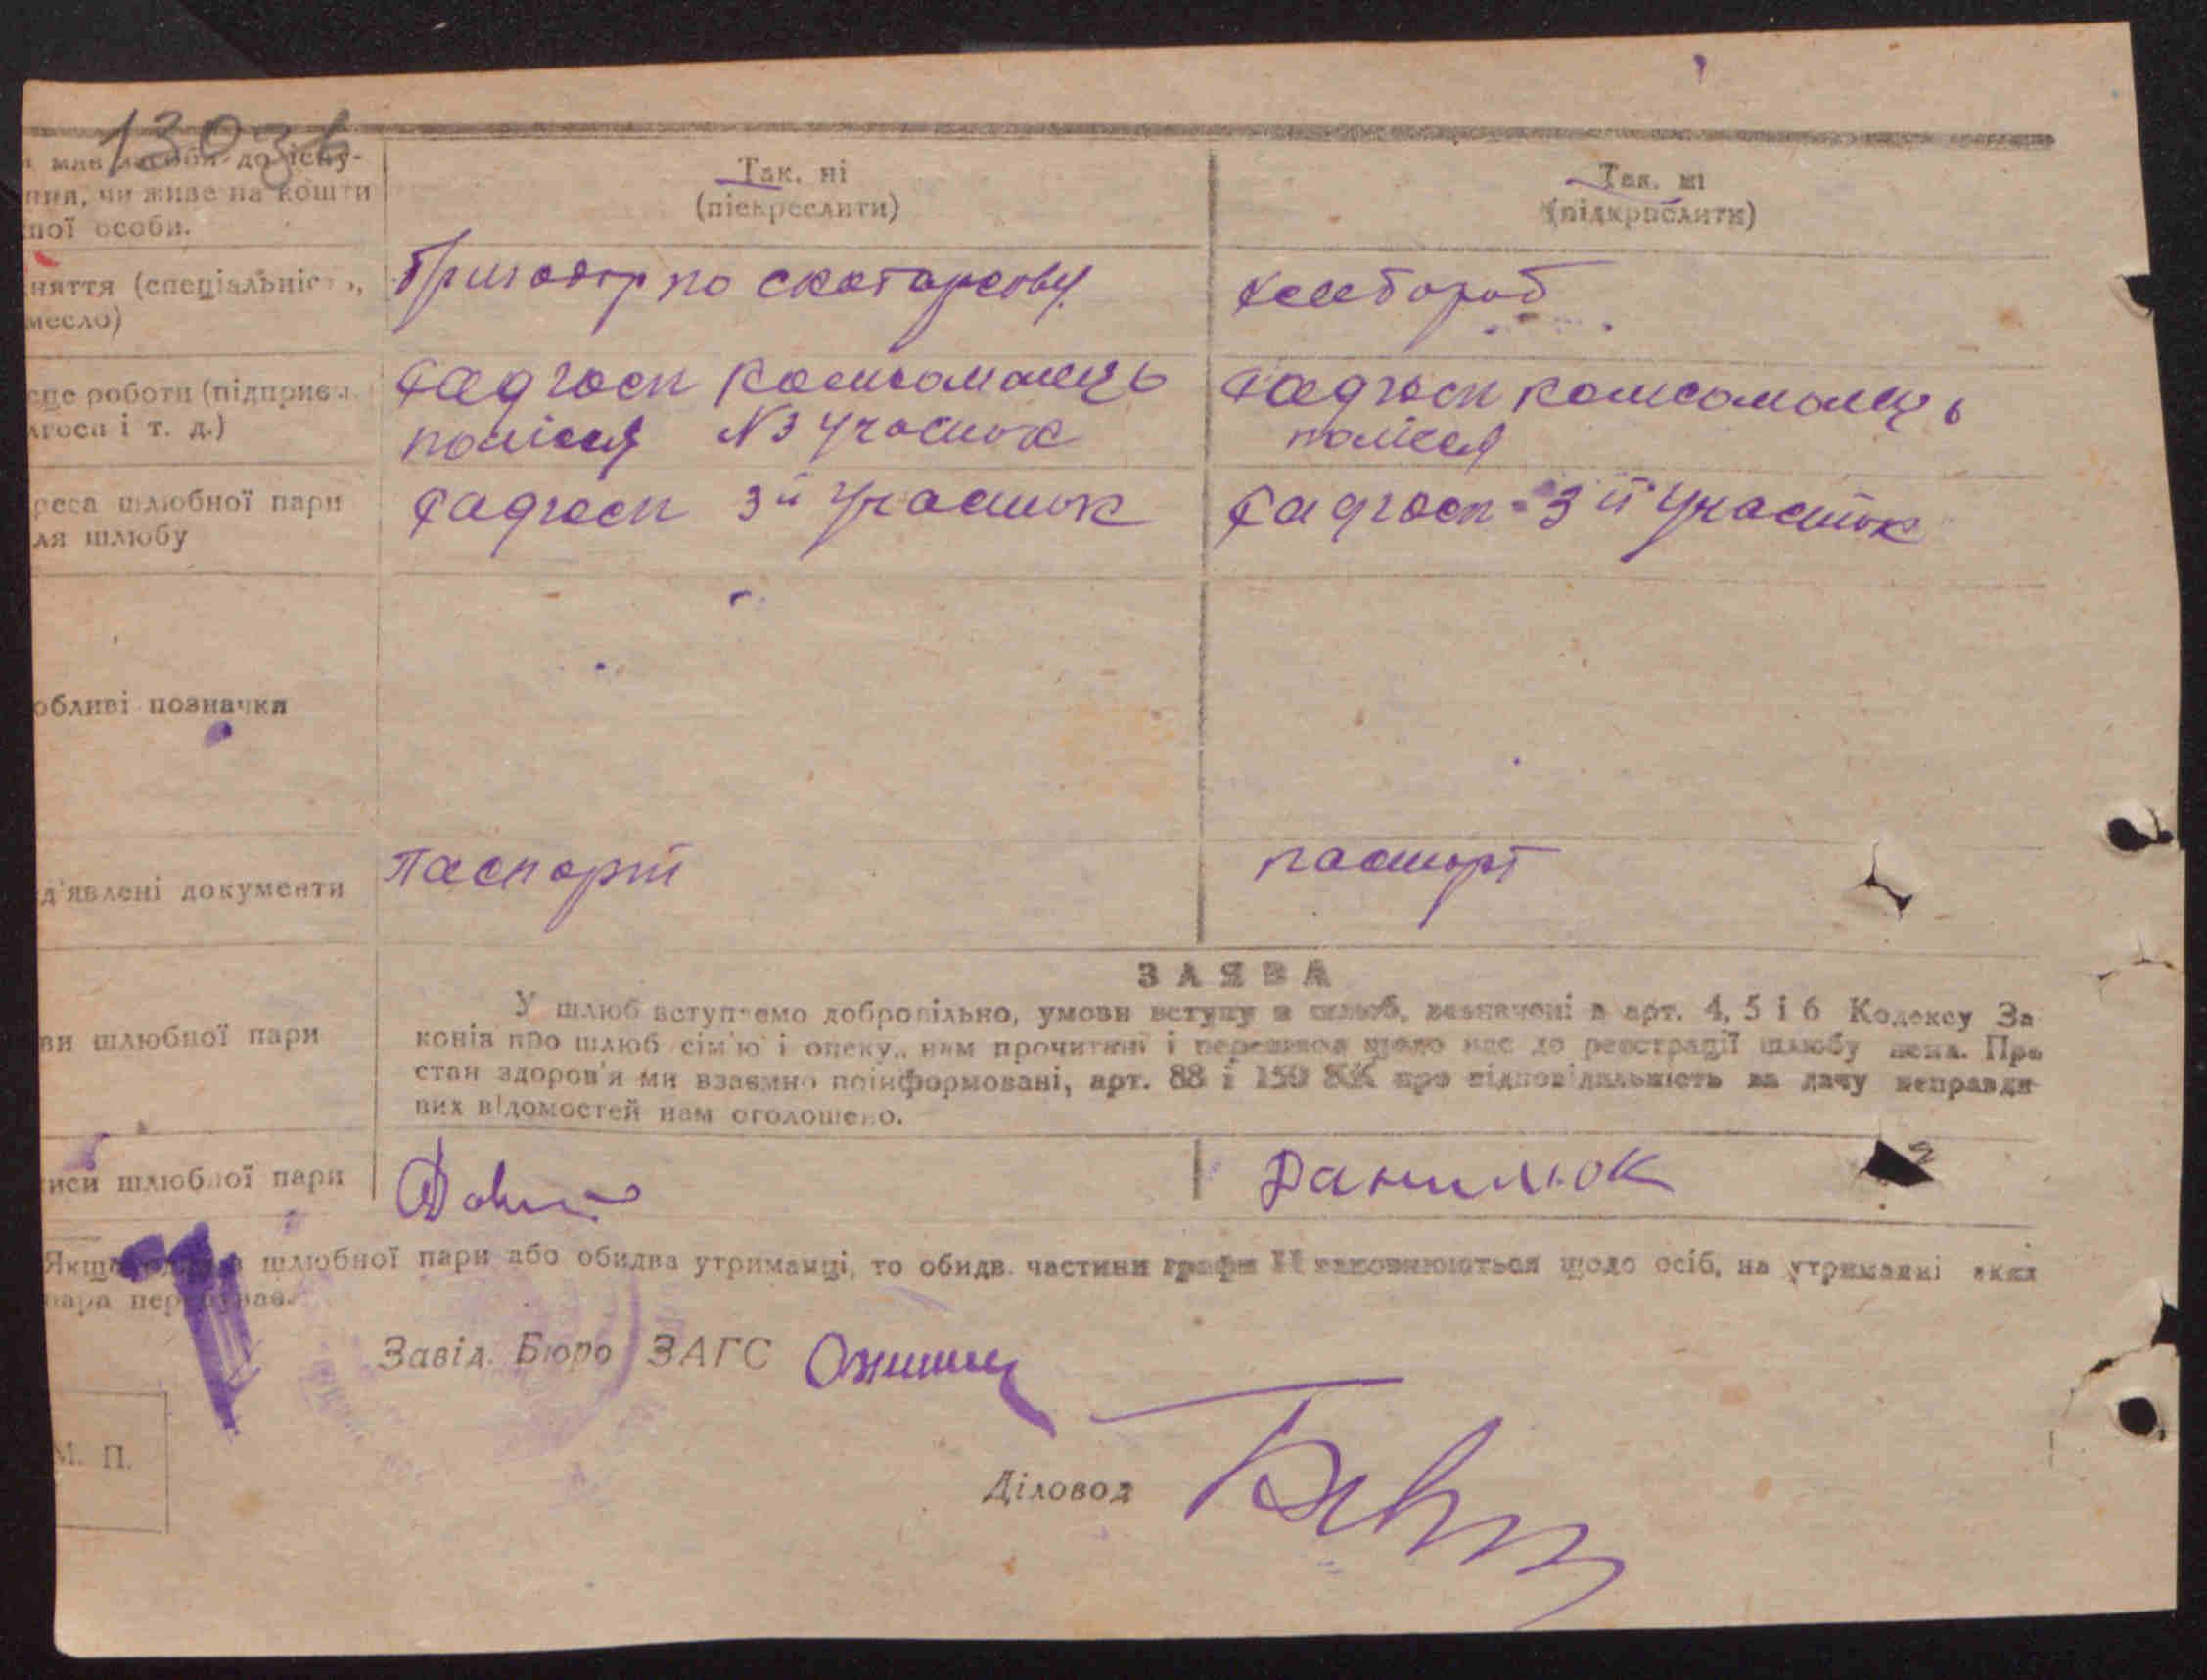 1303
має засоби до існу-
ння, чи живе на кошти
ної особи.
Так. ні
(підкреслити)
Так. ні
(підкреслити)
няття (спеціальність,
месло)
Бригадир по скотарству
хлебороб
сце роботи (підприєм.
лгосп і т. д.)
Радгосп комсомолець
полісся №3 участок
Радгосп комсомолець
полісся
реса шлюбної пари
ля шлюбу
Радгосп 3й участок
Радгосп - 3й участок
обливі позначки
д'явлені документи
Паспорт
паспорт
ЗАЯВА
ви шлюбної пари
У шлюб вступаємо добровільно, умови вступу в шлюб, зазначені в арт. 4, 5 і 6 Кодексу За
конів про шлюб сім'ю і опеку, нам прочитані і перешкод щодо нас до реєстрації шлюбу нема. Про
стан здоров'я ми взаємно поінформовані, арт. 88 і 150 КК про відповідальність за дачу неправди
вих відомостей нам оголошено.
иси шлюбної пари
Данилюк
Якщо шлюбної пари або обидва утриманці, то обидв. частини графи заповнюються щодо осіб, на утриманні яких
пара перебуває.
Завід. Бюро ЗАГС
М. П.
Діловод